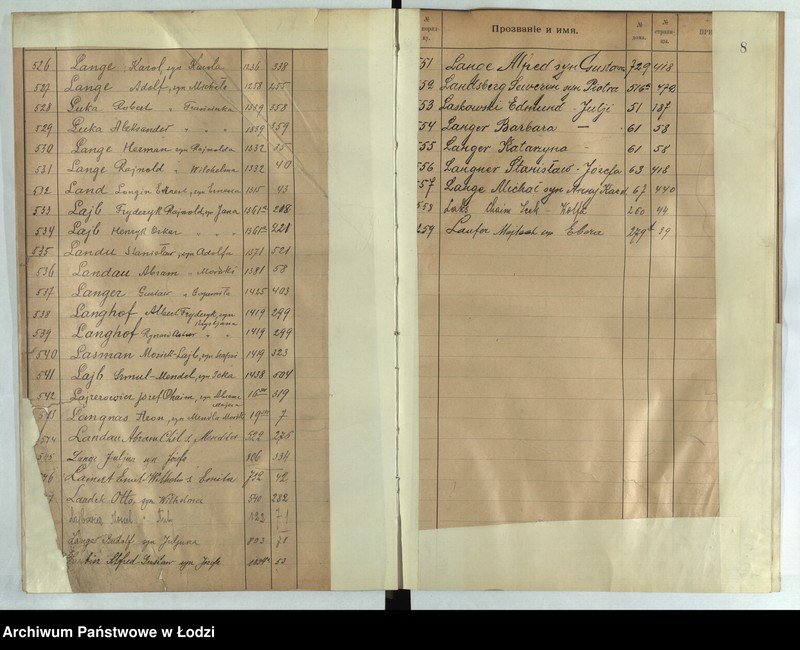 526 Lange Karol, syn Karola 1236 338
527 Lange Adolf, syn Michała 1258 255
528 Luka Robert " Franciszka 1339 358
529 Luka Aleksander " " 1339 359
530 Lange Herman syn Rajnolda 1332
531 Lange Rajnold " Wilhelma 1332 40
532 Land 43
533 Lajb Fryderyk Rajnold, syn Jana 1361a 228
534 Lajb Henryk Oskar " " 1361a 228
535 Landu Stanisław, syn Adolfa 1371 521
536 Landau Abram " Mośka 1381 58
537 Langer Gustaw " Bogumiła 1425 403
538 Langhof Albert Fryderyk, syn Krystjana 1419 299
539 Langhof " " 1419 299
540 Lasman Mosiek-Lajb, syn 1419 323
541 Lajb Szmul-Mendel, syn Icka 1438 504
542 Lajzerowicz Josef Chaim, syn 319
543 Langnas Aron, syn 7
544 Landau Abram Chil s. 522 275
545 Lange Juljusz syn Józefa 806 334
546 Lamert Emil Wilhelm s. 752 42
Landek Otto, syn Wilhelma 540 282
123 71
Langer Rudolf syn Juljana 803
Alfred Gustaw syn Józefa 52
№ поряд- ку.
Прозваніе и имя.
№ дома.
№ страни- цы.
ПРИ
8
551 Lange Alfred syn Gustawa 729 418
552 Landsberg Seweryn syn Piotra 516a 472
553 Laskowski Edmund - Julji 51 137
554 Langer Barbara — 61 58
555 Langer Katarzyna - 61 58
556 Langner Stanisław - Józefa 63 418
557 Lange Michał syn 67 440
558 Chaim Icek - 260 44
259 Laufer syn 279 89
Archiwum Państwowe w Łodzi